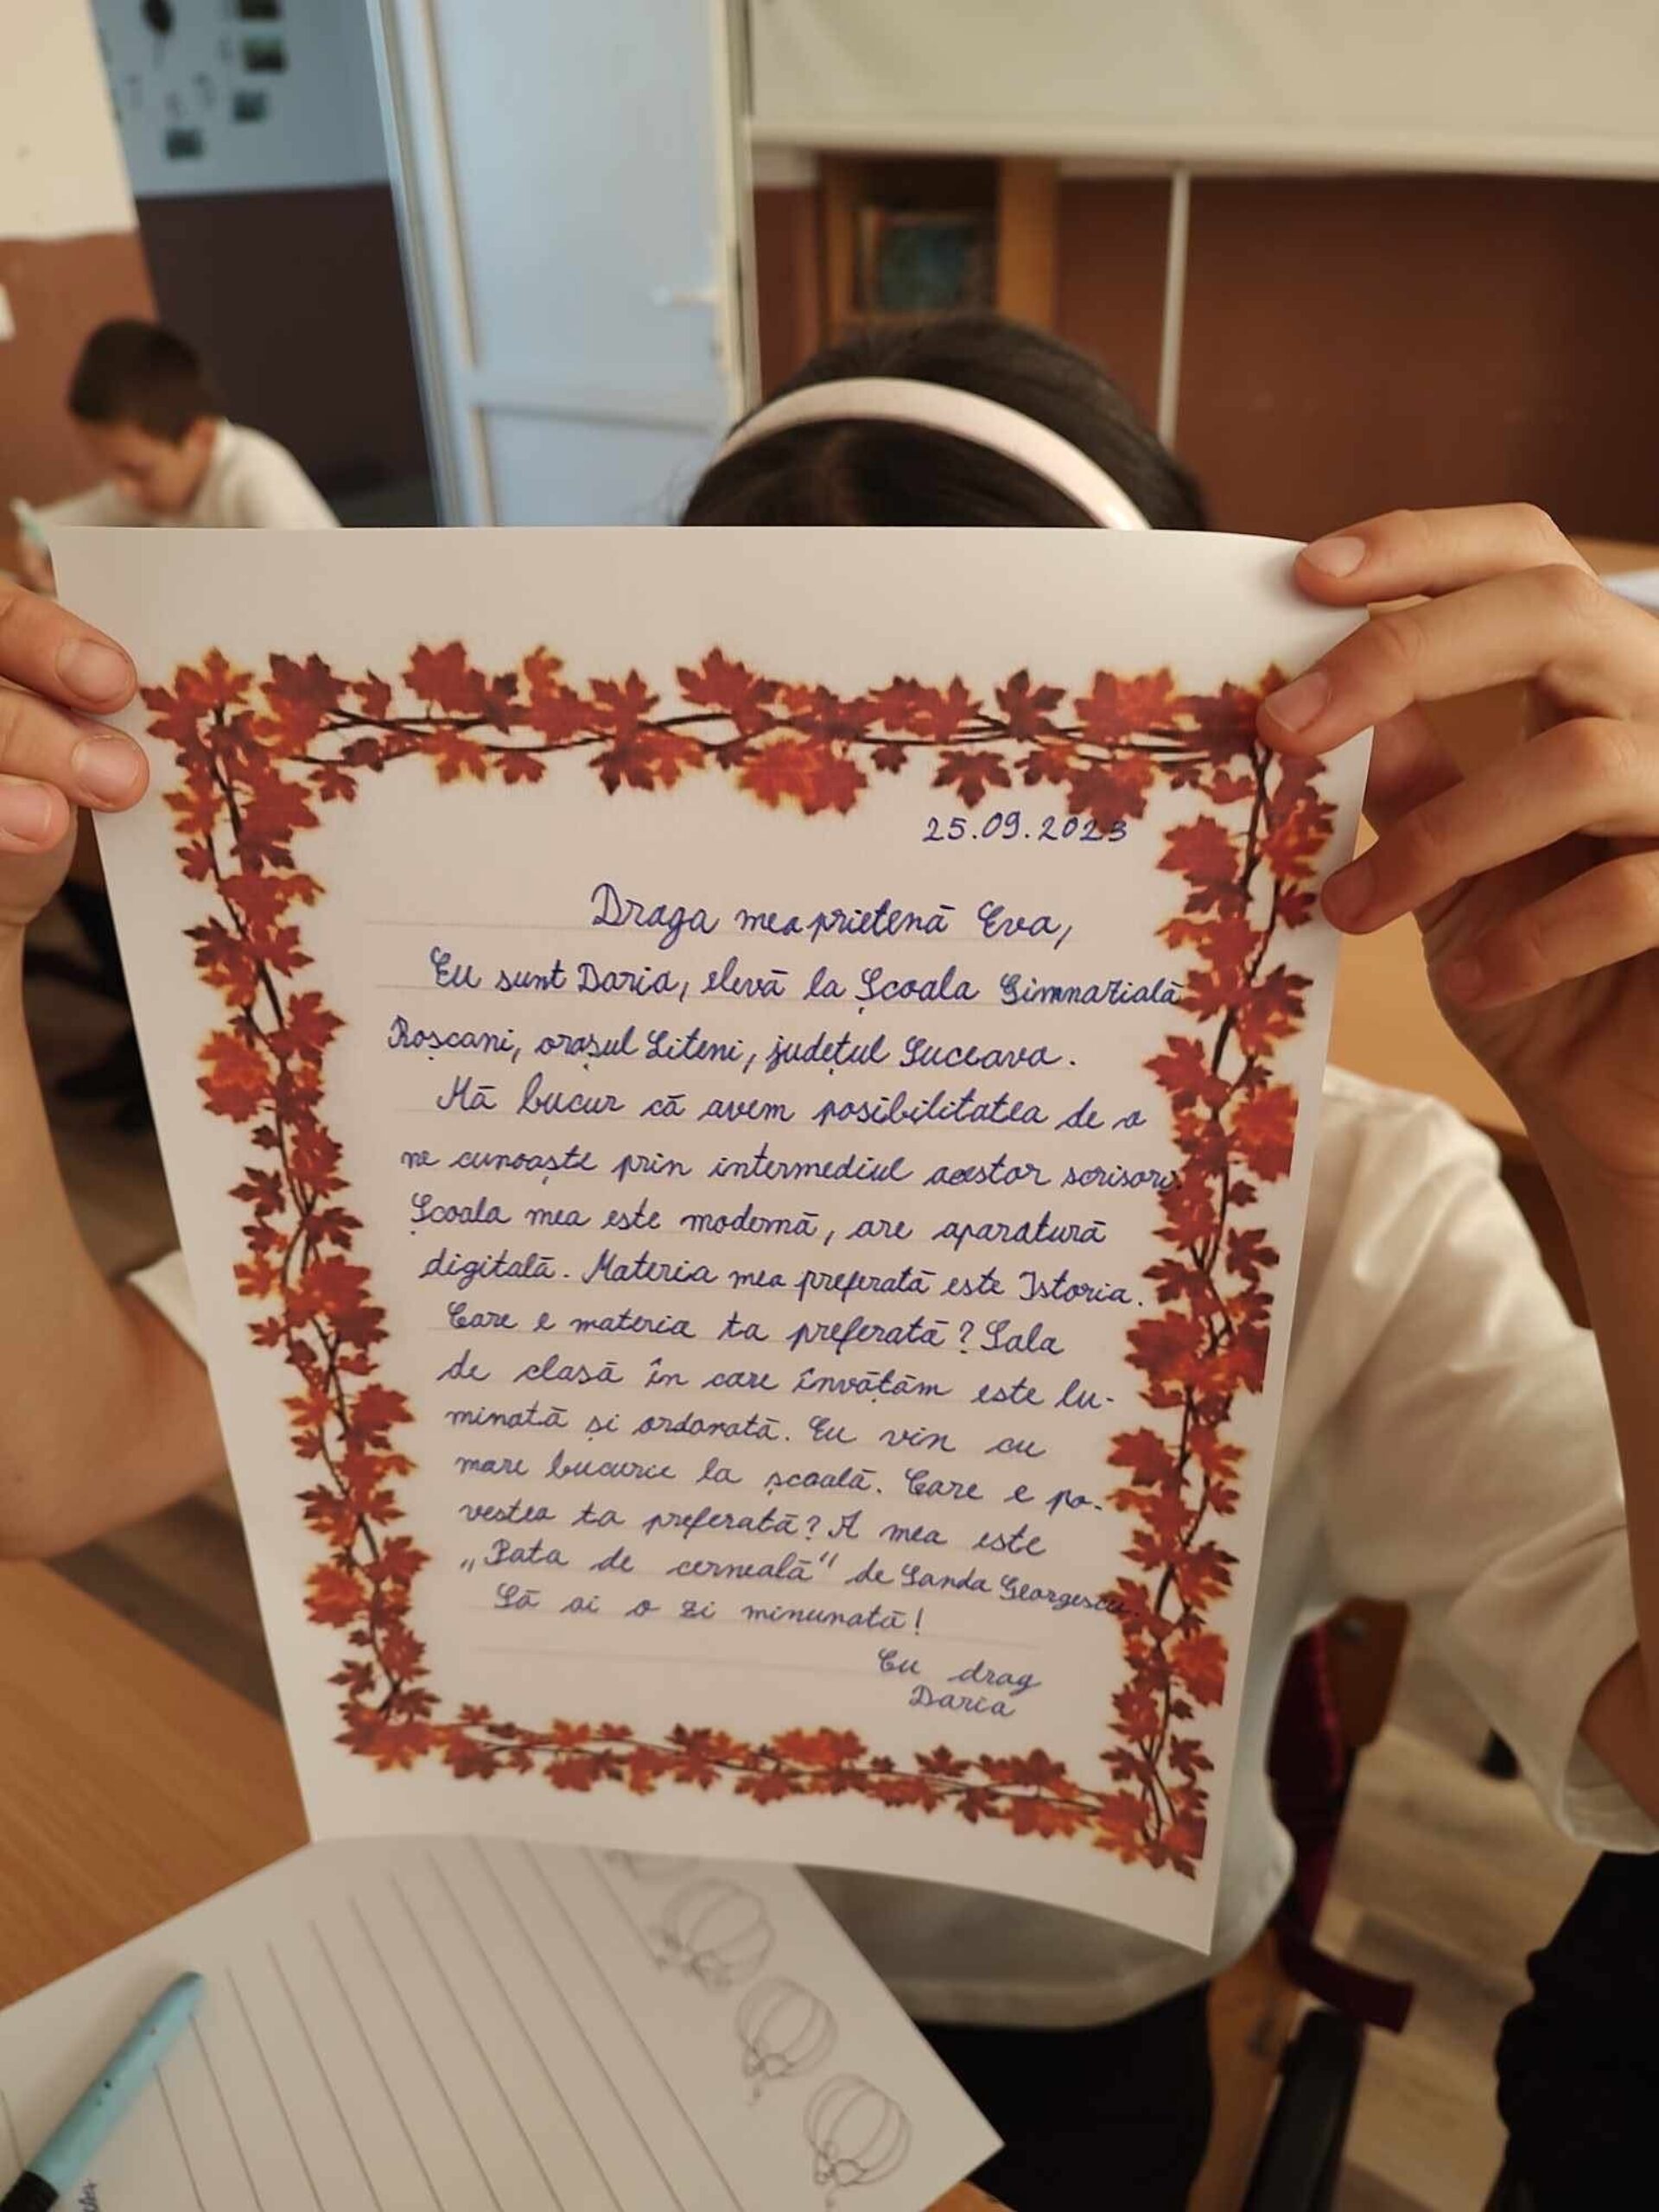 25.09.2023
Draga mea prietenă Eva,
Eu sunt Daria, elevă la Școala Gimnazială
Roșcani, orașul Liteni, județul Suceava.
Mă bucur că avem posibilitatea de a
ne cunoaște prin intermediul acestor scrisori.
Școala mea este modernă, are aparatură
digitală. Materia mea preferată este Istoria.
Care e materia ta preferată? Sala
de clasă în care învățăm este lu-
minată și ordonată. Eu vin cu
mare bucurie la școală. Care e po-
vestea ta preferată? A mea este
„Pata de cerneală" de Sanda Georgescu.
Să ai o zi minunată!
Cu drag
Daria